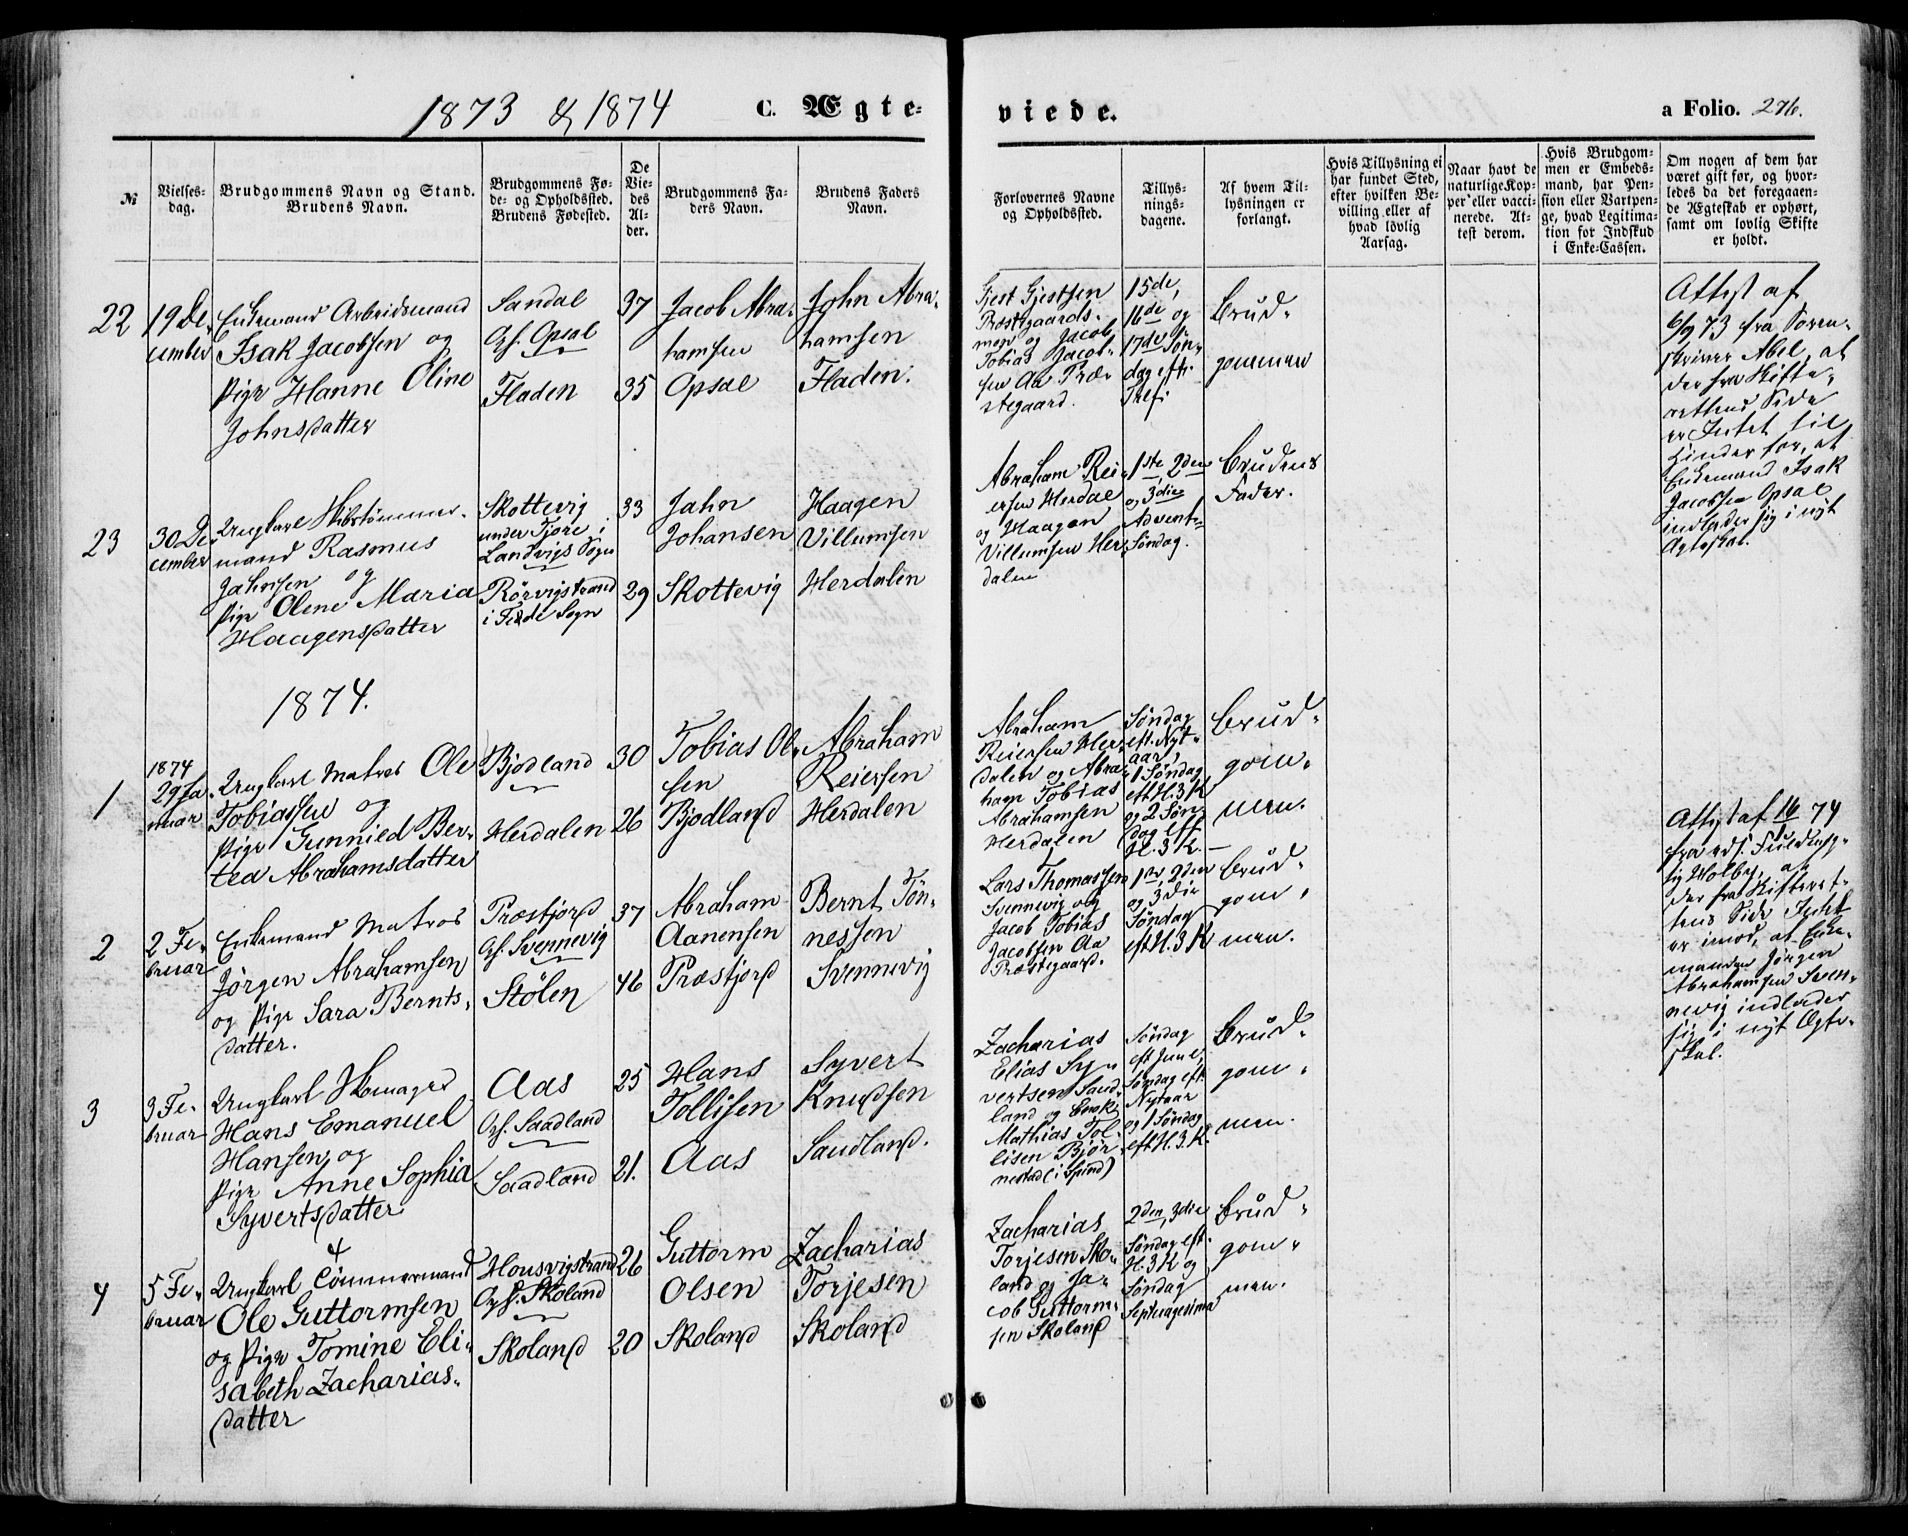 1873 & 1874 C. Ægte-
viede. a Folio. 276.
№
Vielses-
dag.
Brudgommens Navn og Stand.
Brudens Navn.
Brudgommens Fø-
de- og Opholdssted.
Brudens Fødested.
De
Vie-
des
Al-
der.
Brudgommens Fa-
ders Navn.
Brudens Faders
Navn.
Forlovernes Navne
og Opholdssted.
Tillys-
nings-
dagene.
Af hvem Til-
lysningen er
forlangt.
Hvis Tillysning ei
har fundet Sted,
efter hvilken Be-
villing eller af
hvad lovlig
Aarsag.
Naar havt de
naturlige Kop-
per eller vacci-
nerede. At-
test derom.
Hvis Brudgom-
men er Embeds-
mand, har Pen-
sion eller Vartpen-
ge, hvad Legitima-
tion for Indskud
i Enke-Cassen.
Om nogen af dem har
været gift før, og hvor-
ledes da det foregaaen-
de Ægteskab er ophørt,
samt om lovlig Skifte
er holdt.
22
19 De-
cember
Enkemand Arbeidsmand
Isak Jacobsen og
Pige Hanne Oline
Johnsdatter
Sandal
Opsal
Fladen
37
35
Jacob Abra-
hamsen
Opsal
John Abra-
hamsen
Fladen.
Gjest Gjestsen
Præstegaards-
moen og Jacob
Tobias Jacob-
sen Aa Præ-
stegaard.
15de,
16de og
17de Søn-
dag eft.
Tref:
Brud-
gommen
Attest af
6/9 73 fra Soren-
skriver Abel, at
der fra Skifte-
rettens Side
er Intet til
Hinder for, at
Enkemand Isak
Jacobsen Opsal
indlader sig i nyt
Ægteskab.
23
30 De-
cember
Ungkarl Skibstømmer-
mand Rasmus
Jahnsen og
Pige Olene Maria
Haagensdatter
Skottevig
under Fjore i
Landvigs Sogn
Rørvigstrand
i Fede Sogn
33
29
Jahn
Johansen
Skottevig
Haagen
Villumsen
Herdalen
Abraham Rei-
ersen Herdal
og Haagen
Villumsen Her-
dalen
1ste, 2den
og 3die
Advents-
Søndag.
Brudens
Fader.
1874.
1
1874
29 Ja-
nuar
Ungkarl Matros Ole
Tobiassen og
Pige Gunnild Ber-
tea Abrahamsdatter
Bjodland
Herdalen
30
26
Tobias Ol-
sen
Bjodland
Abraham
Reiersen
Herdalen
Abraham
Reiersen Her-
dalen og Abra-
ham Tobias
Abrahamsen
Herdalen
Søndag
eft. Nyt-
aar,
1 Søndag
eft H. 3 K
og 2 Søn-
dag eft
H. 3 K.
Brud-
gom-
men.
2
2 Fe-
bruar
Enkemand Matros
Jørgen Abrahamsen
og Pige Sara Bernts-
datter.
Præstjord
Svennevig
Stølen
37
46
Abraham
Aanensen
Præstjord
Bernt Tøn-
nessen
Svennevig
Lars Thomassen
Svennevig og
Jacob Tobias
Jacobsen Aa
Præstegaard.
1ste, 2den
og 3die
Søndag
eft H. 3 K
Brud-
gom-
men.
Attest af 16/1 74
fra const. Fuldmæg-
tig Holby, at
der fra Skifteret-
tens Side Intet
er imod, at Enke-
manden Jørgen
Abrahamsen Sven-
nevig indlader
sig i nyt Ægte-
skab.
3
3 Fe-
bruar
Ungkarl Skomager
Hans Emanuel
Hansen og
Pige Anne Sophia
Syvertsdatter
Aas
Saadland
Saadland
25
21.
Hans
Tollisen
Aas
Syvert
Knudsen
Saudland.
Zacharias
Elias Sy-
vertsen Saud-
land og Enok
Mathias Tol-
lisen Bjør-
nestad (i Spind)
Søndag
eft Juul,
Søndag eft
Nytaar
og 1 Søndag
eft H. 3. K.
Brud-
gom-
men.
4
5 Fe-
bruar
Ungkarl Tømmermand
Ole Guttormsen
og Pige Tomine Eli-
sabeth Zacharias-
datter
Housvigstrand
Skoland
Skoland
26
20
Guttorm
Olsen
Skoland
Zacharias
Torjesen
Skoland
Zacharias
Torjesen Sko-
land og Ja-
cob Guttorm-
sen Skoland
2den, 3die
Søndag eft
H. 3 K og
Søndag
Septuagesima
Brud-
gom-
men.